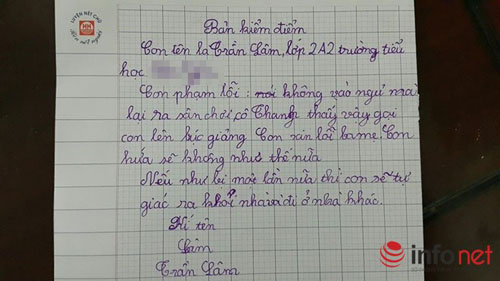 LUYỆN NÉT CHỮ
Rèn nết người
Bản kiểm điểm
Con tên là Trần Lâm, lớp 2A2 trường tiểu
học
Con phạm lỗi : không vào ngủ mà
lại ra sân chơi cô Thanh thấy vậy gọi
con lên bục giảng Con xin lỗi ba mẹ. Con
hứa sẽ không như thế nữa
Nếu như bị một lần nữa thì con sẽ tự
giác ra khỏi nhà và đi ở nhà khác.
Kí tên
Lâm
Trần Lâm
infonet